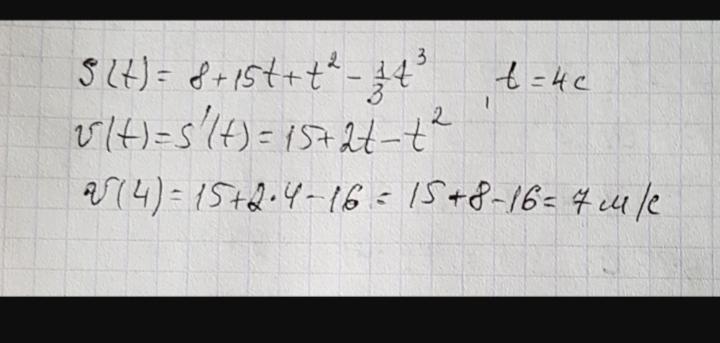 S(t) = 8+15t+t² - 1/3 t³, t = 4c
v(t) = s'(t) = 15+2t-t²
v(4) = 15+2·4-16 = 15+8-16 = 7 м/с